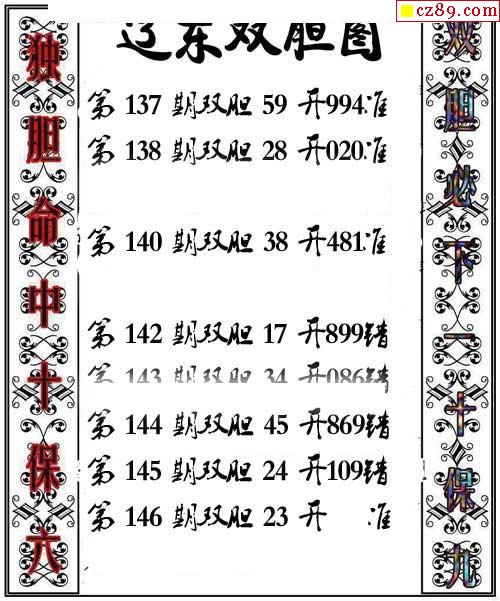 cz89.com
辽东双胆图
独胆命中十保六
第 137 期双胆 59 开994准
第 138 期双胆 28 开020准
第 140 期双胆 38 开481准
第 142 期双胆 17 开899错
第 143 期双胆 34 开086错
第 144 期双胆 45 开869错
第 145 期双胆 24 开109错
第 146 期双胆 23 开 准
双胆必下一十保九